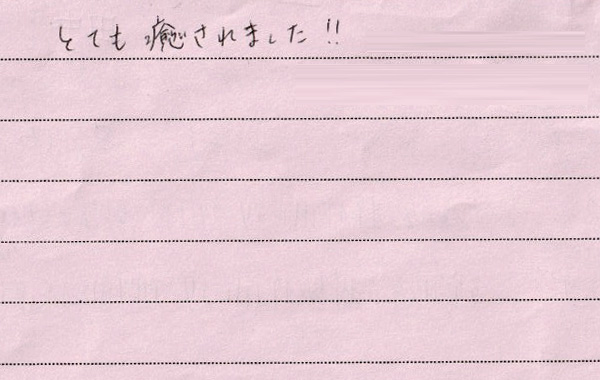 とても癒されました!!